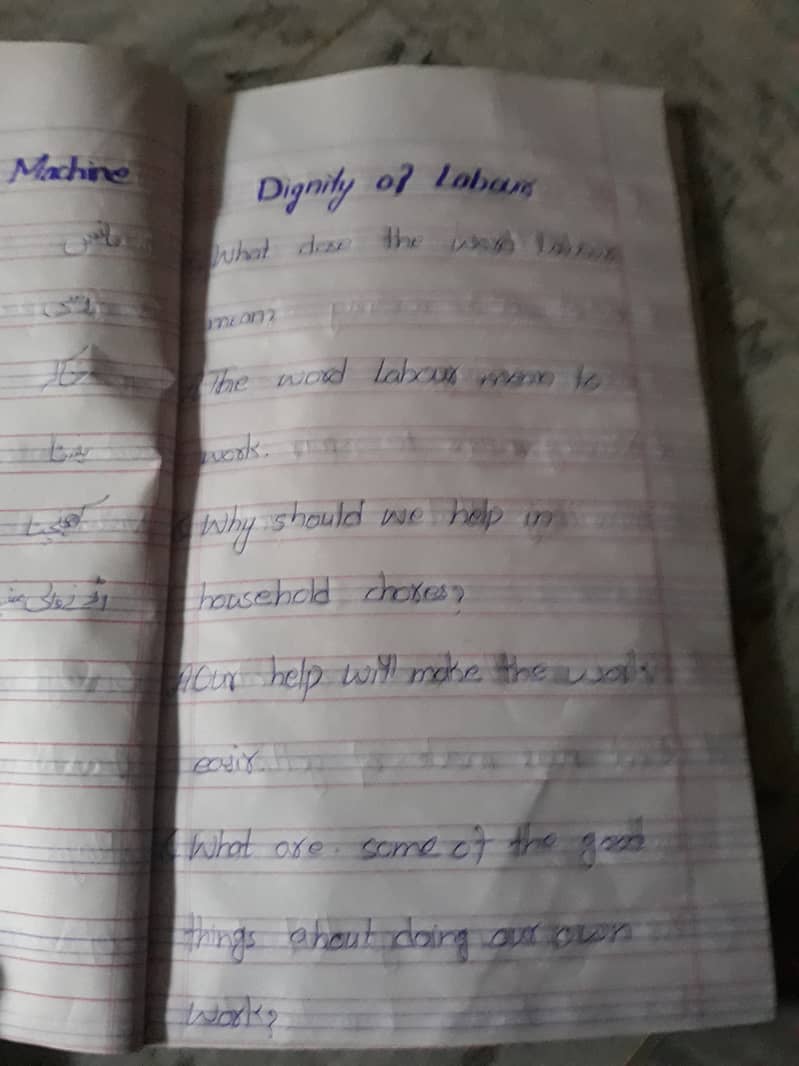 Machine
سائنس
بنتا
Dignity of Labour
What does the word labour
mean?
The word labour mean to
work.
Why should we help in
household chores?
A Our help will make the work
easir.
What are some of the good
things about doing our own
work?